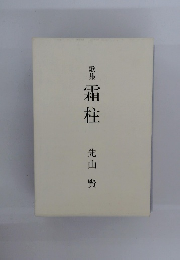 歌集
霜柱
山